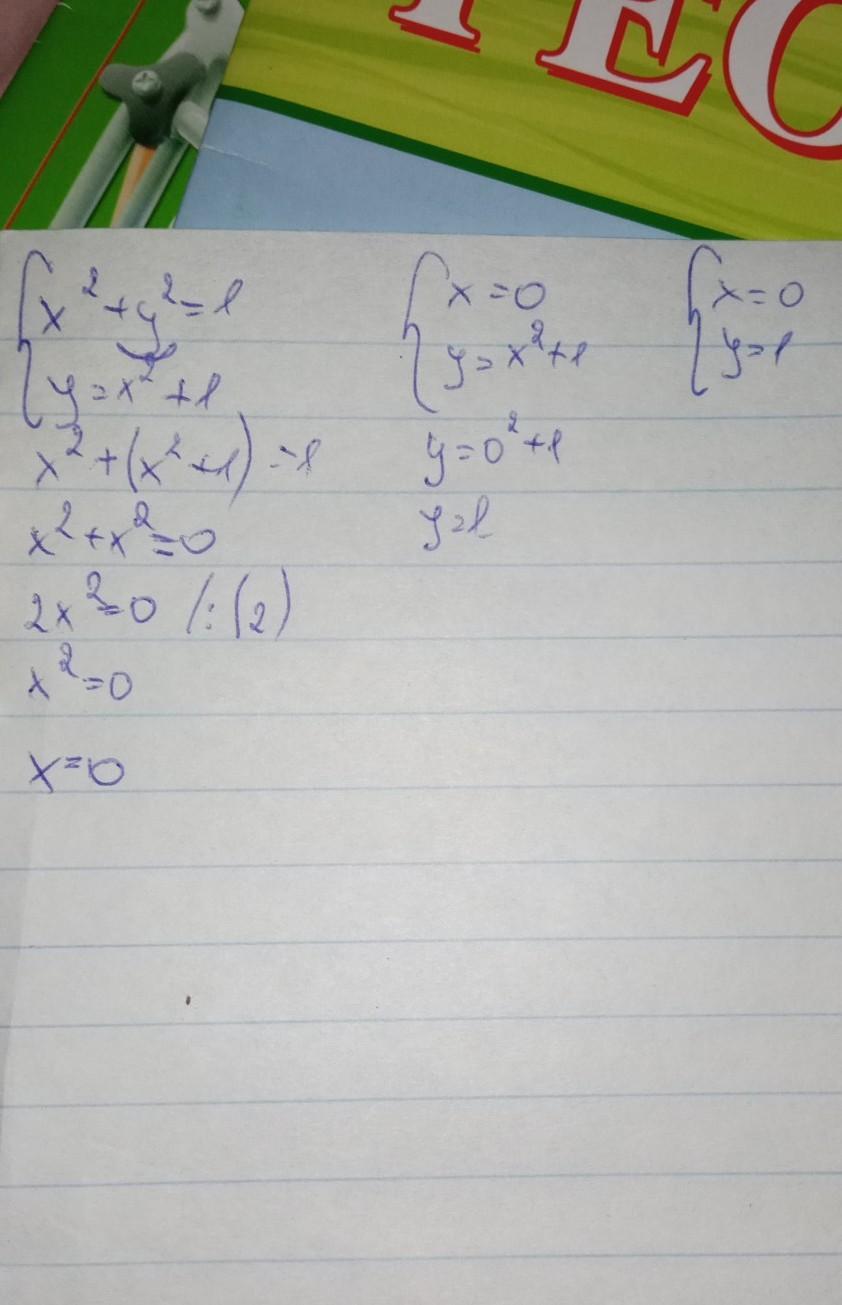 ГЕО
x² + y² = 1
y = x² + 1
x² + (x² + 1) = 1
x² + x² = 0
2x² = 0 /: (2)
x² = 0
x = 0
x = 0
y = x² + 1
y = 0² + 1
y = 1
x = 0
y = 1